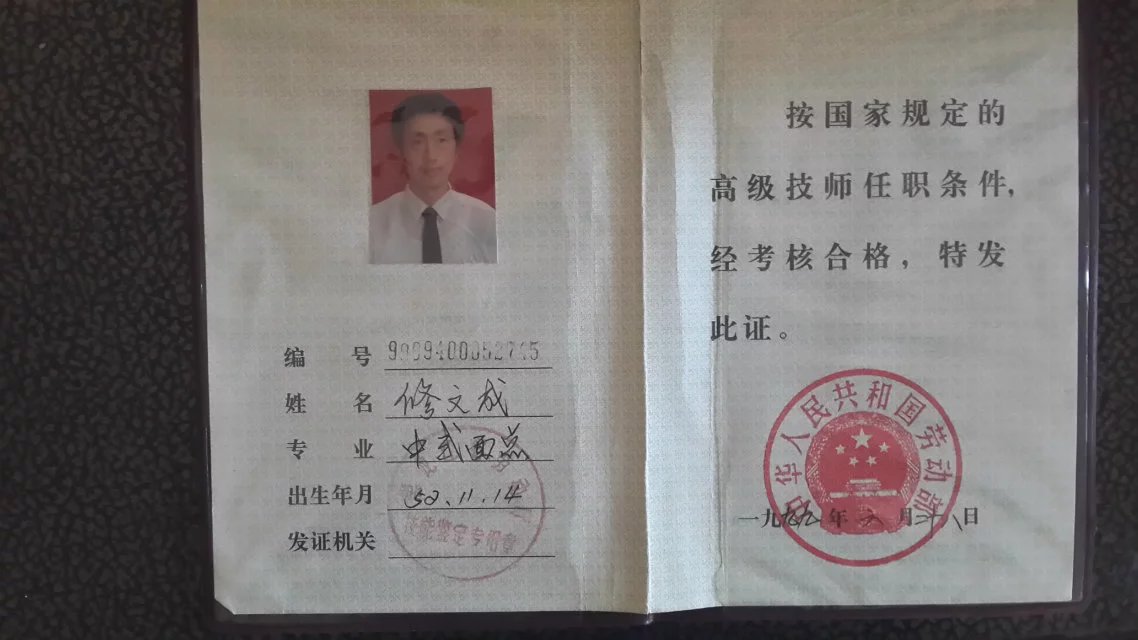 编 号
姓 名 修文成
专 业 中式面点
出生年月 50.11.14
发证机关
技能鉴定专用章
按国家规定的
高级技师任职条件,
经考核合格，特发
此证。
中华人民共和国劳动部
一九九九年六月十八日